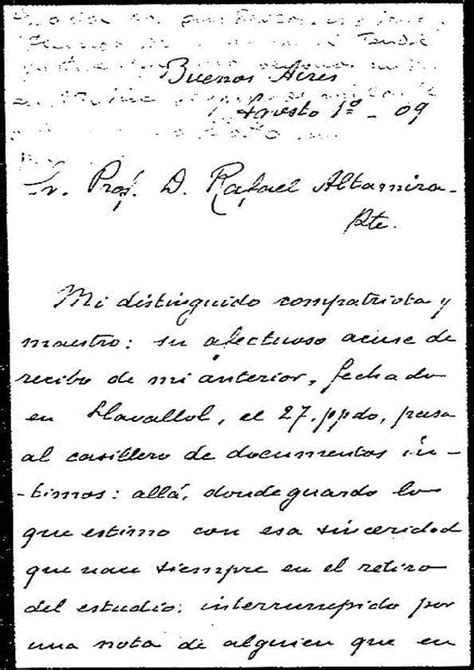 Buenos Aires
Agosto 1º - 09
Sr. Prof. D. Rafael Altamira-
Pte.
Mi distinguido compatriota y
maestro: su afectuoso acuse de
recibo de mi anterior, fechado
en Llavallol, el 27. ppdo, pasa
al casillero de documentos ín-
-timos: allá, donde guardo lo
que estimo con esa sinceridad
que nace siempre en el retiro
del estudio: interrumpido por
una nota de alguien que en